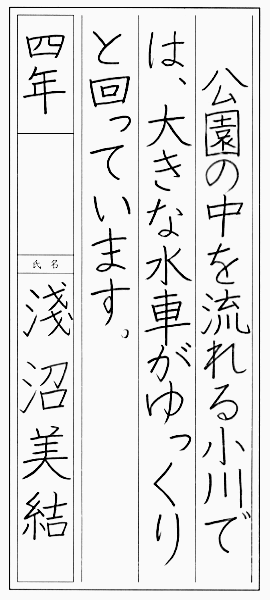 公園の中を流れる小川で
は、大きな水車がゆっくり
と回っています。
四年
氏名
淺沼美結